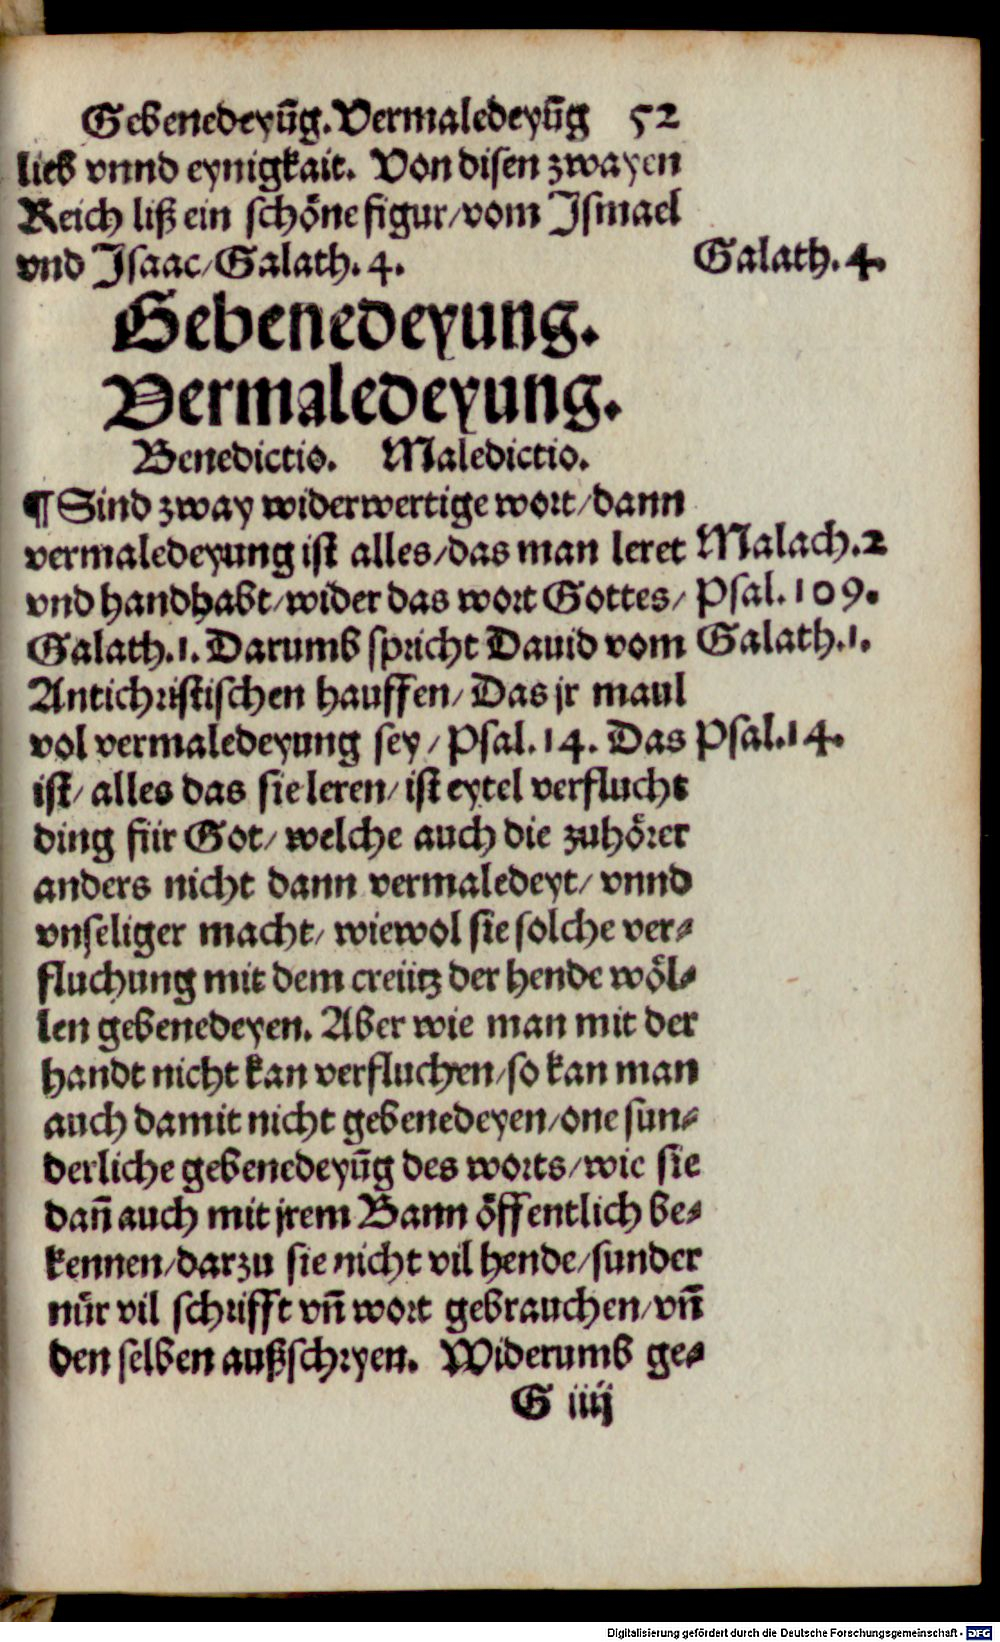 Gebenedeyūg. Vermaledeyūg 52
lieb vnnd eynigkait. Von disen zwayen
Reich liß ein schöne figur/vom Ismael
vnd Isaac/Galath. 4.
Galath. 4.
Gebenedeyung.
Vermaledeyung.
Benedictio. Maledictio.
¶ Sind zway widerwertige wort/dann
vermaledeyung ist alles/das man leret
Malach. 2
vnd handhabt/wider das wort Gottes/
Psal. 109.
Galath. 1. Darumb spricht Dauid vom
Galath. 1.
Antichristischen hauffen/ Das jr maul
vol vermaledeyung sey/Psal. 14. Das
Psal. 14.
ist/alles das sie leren/ist eytel verflucht
ding für Got/ welche auch die zuhörer
anders nicht dann vermaledeyt/ vnnd
vnseliger macht/ wiewol sie solche ver⸗
fluchung mit dem creütz der hende wöl⸗
len gebenedeyen. Aber wie man mit der
handt nicht kan verfluchen/so kan man
auch damit nicht gebenedeyen/one sun⸗
derliche gebenedeyūg des worts/wie sie
dañ auch mit jrem Bann öffentlich be⸗
kennen/darzu sie nicht vil hende/sunder
nůr vil schrifft vñ wort gebrauchen/vñ
den selben außschryen. Widerumb ge⸗
G iiij
Digitalisierung gefördert durch die Deutsche Forschungsgemeinschaft - DFG